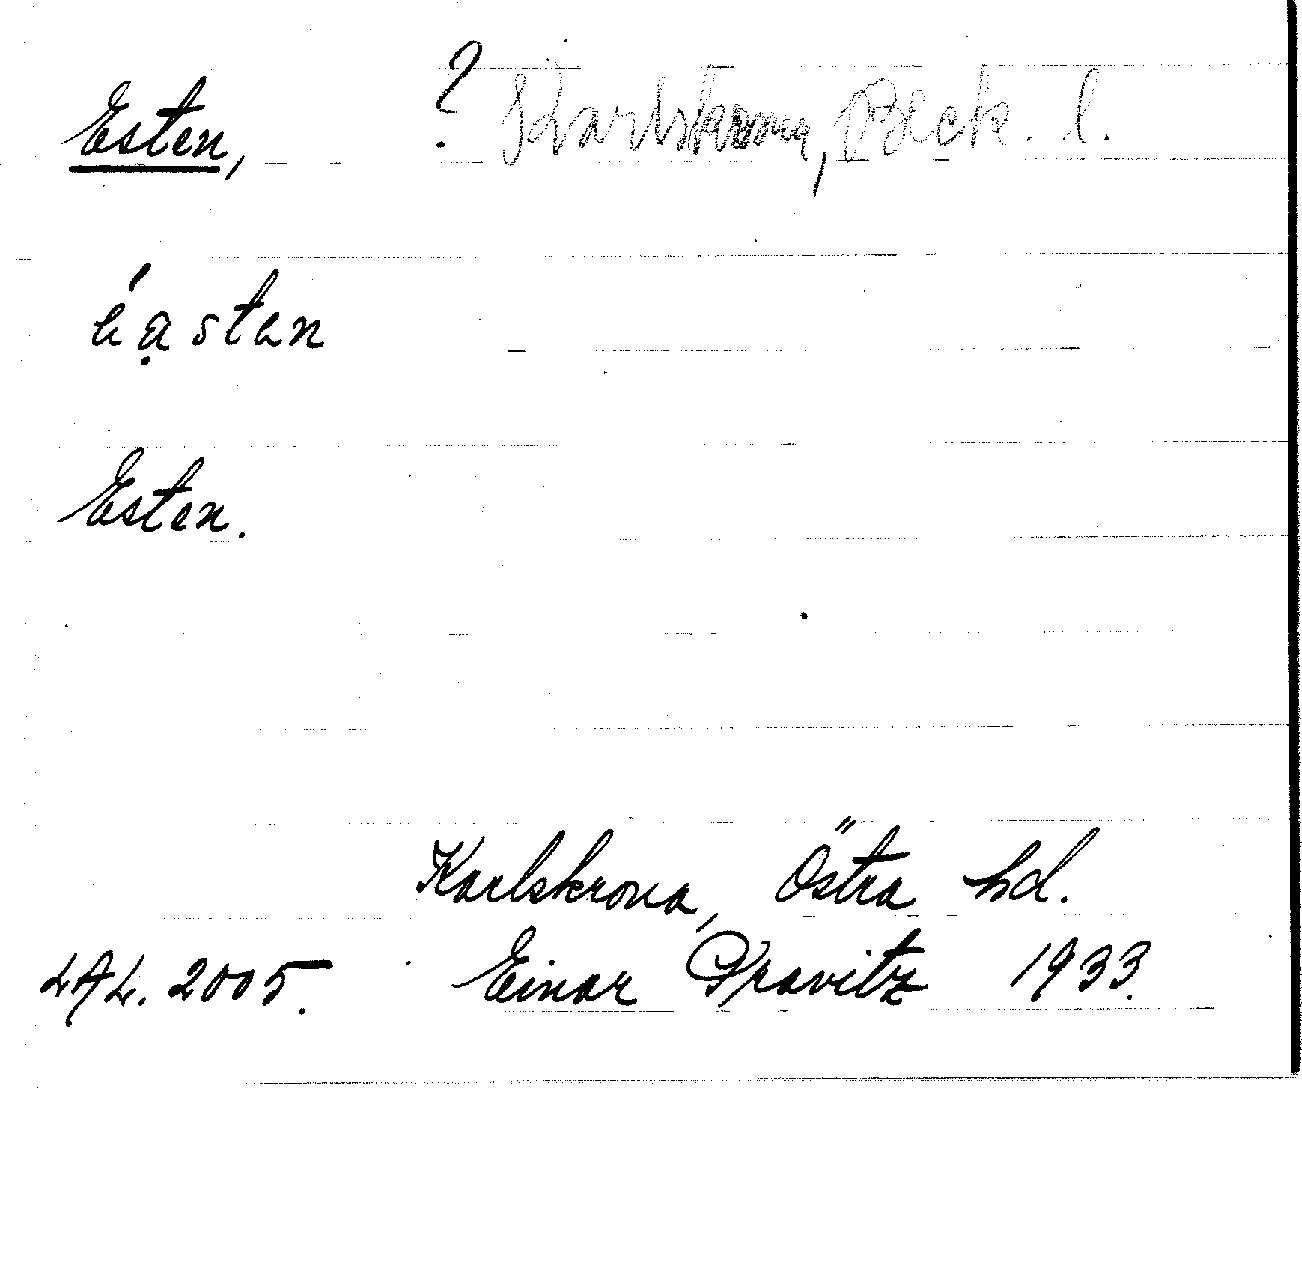 Esten, ? Karlskrona, Bleck. l.
éạsten
Esten.
Karlskrona, Östra hd.
LAL. 2005. Einar Pravitz 1933.